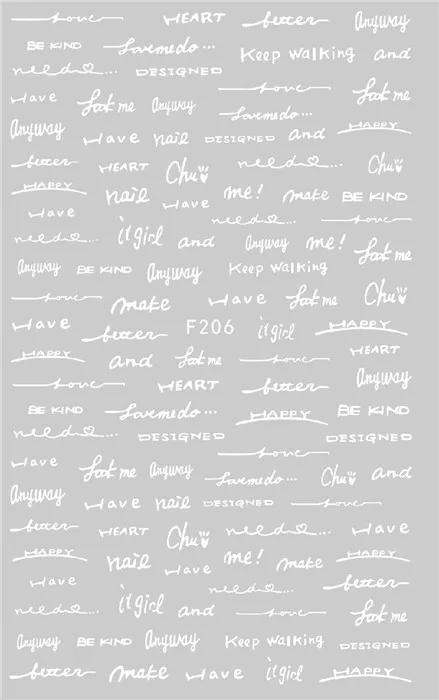 love HEART better Anyway
BE KIND Lovemedo... Keep walking and
need... DESIGNED love
Have Look me Anyway Lovemedo... Look me
Anyway Have nail DESIGNED and HAPPY
better HEART Chu need... Chu
HAPPY nail Have me! make BE KIND
Have need... love
need... it girl and Anyway me! Look me
Anyway BE KIND Anyway Keep walking
love make Have Look me Chu
Have better F206 it girl HAPPY
HAPPY and Look me love HEART
love HEART better Anyway
BE KIND Lovemedo... HAPPY BE KIND
need... DESIGNED DESIGNED
love
Have Look me Anyway Lovemedo... Chu and
Anyway Have nail DESIGNED love
better HEART Chu need... Have
HAPPY nail Have me! make HAPPY
Have need... better
need... it girl and love Look me
Anyway BE KIND Anyway Keep walking DESIGNED
better make Have it girl HAPPY